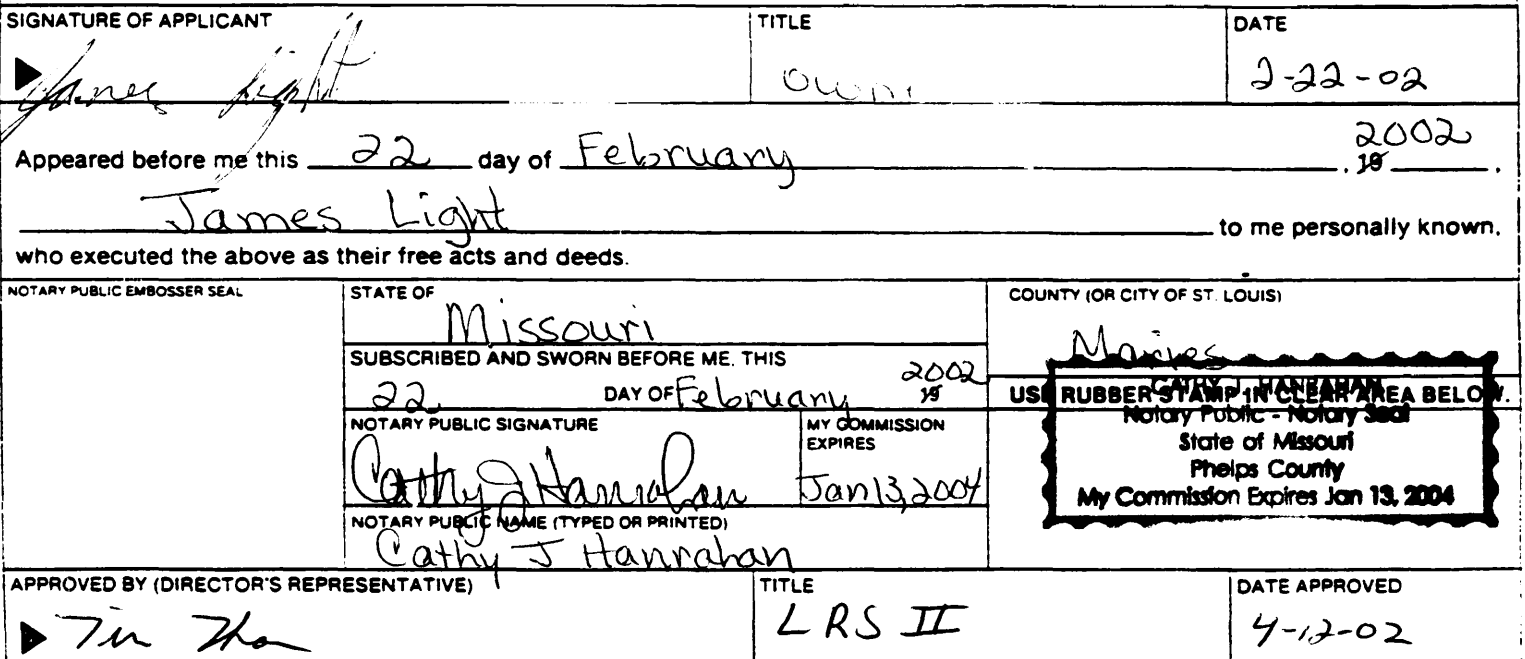 SIGNATURE OF APPLICANT TITLE DATE
James Light 2-22-02
Appeared before me this 22 day of February 2002 , 19 .
James Light to me personally known,
who executed the above as their free acts and deeds.
NOTARY PUBLIC EMBOSSER SEAL STATE OF COUNTY (OR CITY OF ST. LOUIS)
Missouri Maries
SUBSCRIBED AND SWORN BEFORE ME, THIS
22 DAY OF February 2002 19
USE RUBBER STAMP IN CLEAR AREA BELOW.
CATHY J. HANRAHAN
Notary Public - Notary Seal
State of Missouri
Phelps County
My Commission Expires Jan 13, 2004
NOTARY PUBLIC SIGNATURE MY COMMISSION EXPIRES
Cathy J Hanrahan Jan 13, 2004
NOTARY PUBLIC NAME (TYPED OR PRINTED)
Cathy J Hanrahan
APPROVED BY (DIRECTOR'S REPRESENTATIVE) TITLE DATE APPROVED
LRS II 4-12-02